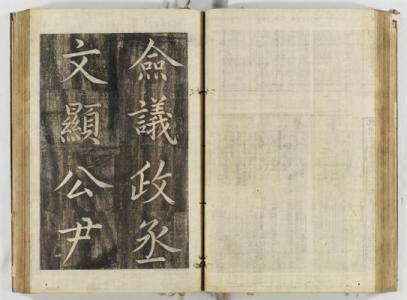 僉議政丞
文顯公尹